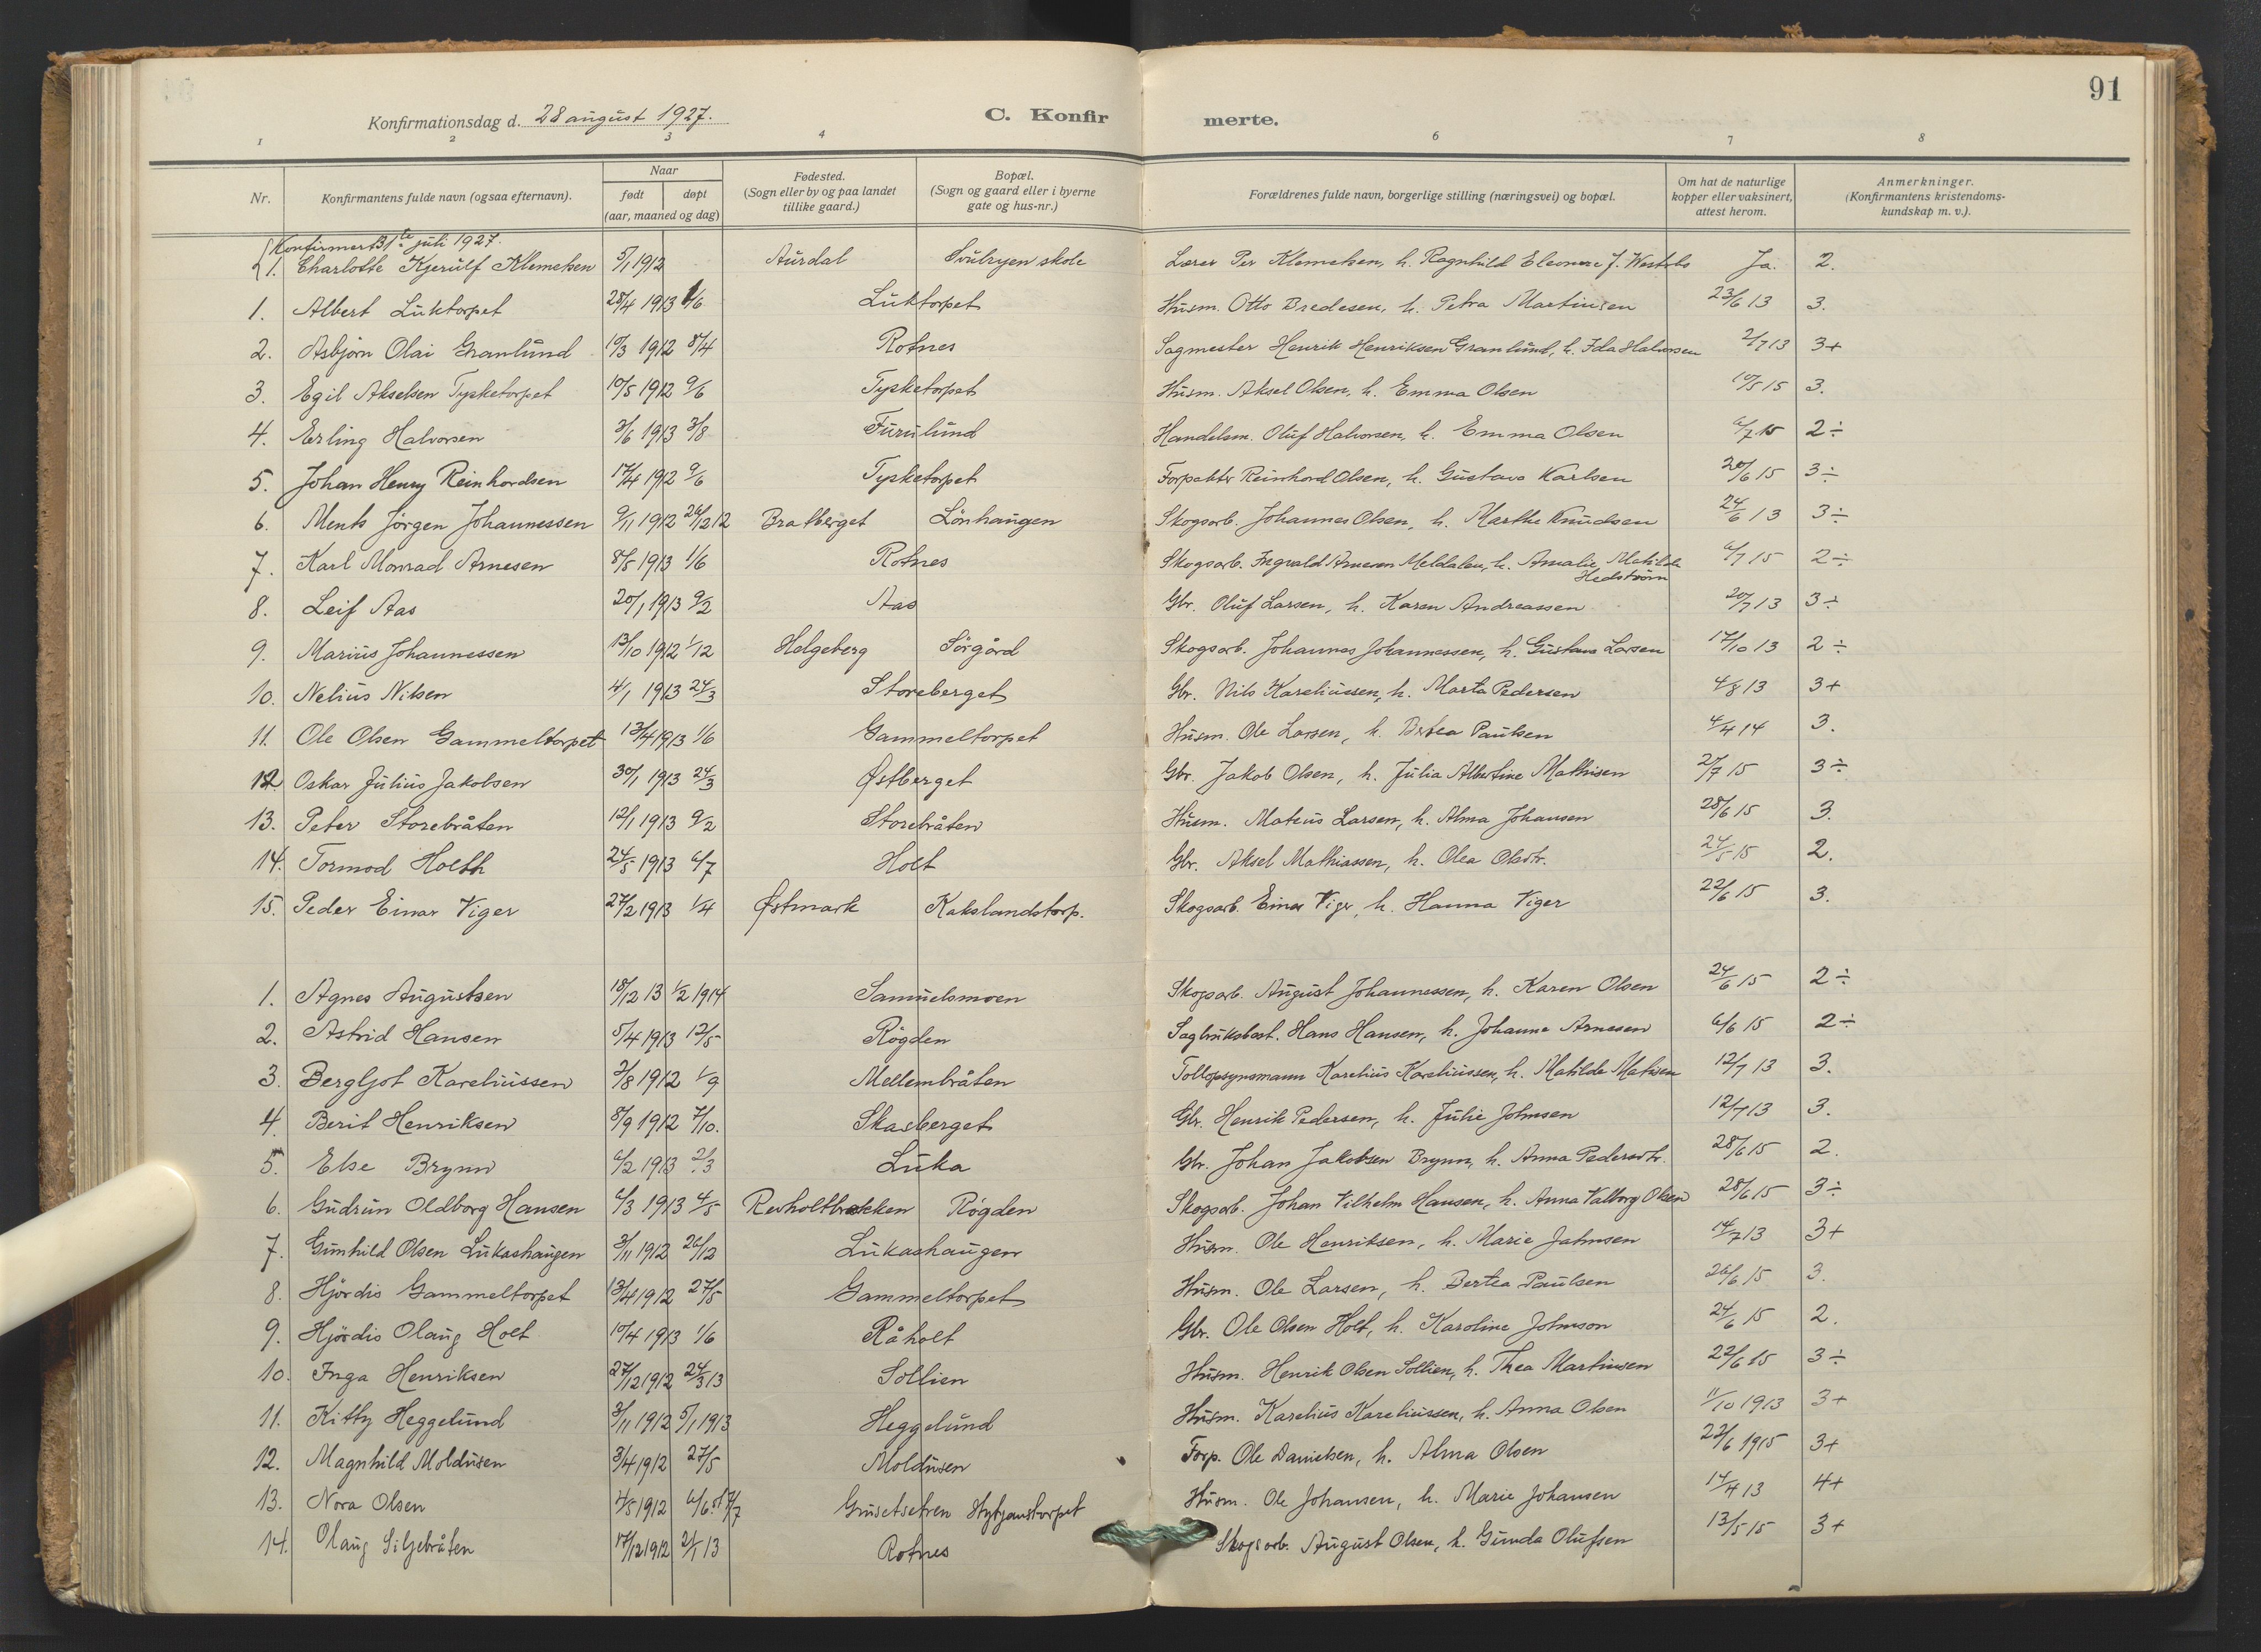 91
Konfirmationsdag d. 28 august 1927. C. Konfir merte.
1 2 3 4 6 7 8
Nr. Konfirmantens fulde navn (ogsaa efternavn). Naar født døpt (aar, maaned og dag) Fødested. (Sogn eller by og paa landet tillike gaard.) Bopæl. (Sogn og gaard eller i byerne gate og hus-nr.) Forældrenes fulde navn, borgerlige stilling (næringsvei) og bopæl. Om hat de naturlige kopper eller vaksinert, attest herom. Anmerkninger. (Konfirmantens kristendoms-kundskap m. v.).
Konfirmert 31te juli 1927.
1. Charlotte Kjerulf Klemetsen 5/1 1912 Aurdal Svulryen skole Lærer Per Klemetsen, h. Ragnhild Eleonore J. Ja. 2.
1. Albert Luktorpet 28/4 1913 1/6 Luktorpet Husm. Otto Bredesen, h. Petra Martinsen 23/6 13 3.
2. Asbjørn Olai Granlund 10/3 1912 8/4 Rotnes Sagmester Henrik Henriksen Granlund, h. Ida Halvorsen 2/7 13 3+
3. Egil Akselsen Tysketorpet 10/5 1912 9/6 Tysketorpet Husm. Aksel Olsen, h. Emma Olsen 10/5 15 3.
4. Erling Halvorsen 3/6 1913 3/8 Furulund Handelsm. Oluf Halvorsen, h. Emma Olsen 6/7 15 2÷
5. Johan Henry Reinhordsen 17/4 1912 9/6 Tysketorpet Forpakter Reinhord Olsen, h. Gustava Karlsen 20/6 15 3÷
6. Ments Jörgen Johannessen 9/11 1912 26/12 12 Bratberget Lönhaugen Skogsarb. Johannes Olsen, h. Marthe Knudsen 24/6 13 3÷
7. Karl Monrad Arnesen 8/5 1913 1/6 Rotnes Skogsarb. Ingvald Arnesen Meldalen, h. Amalie Matilde Hedström 6/7 15 2÷
8. Leif Aas 20/1 1913 9/2 Aas Gbr. Oluf Larsen, h. Karen Andreassen 20/7 13 3÷
9. Marius Johannessen 13/10 1912 1/12 Helgeberg Sörgård Skogsarb. Johannes Johannessen, h. Gustava Larsen 17/10 13 2÷
10. Nelius Nilsen 4/1 1913 24/3 Storeberget Gbr. Nils Kareliussen, h. Marta Pedersen 4/8 13 3+
11. Ole Olsen Gammeltorpet 13/4 1913 1/6 Gammeltorpet Husm. Ole Larsen, h. Bertea Paulsen 4/4 14 3.
12 Oskar Julius Jakobsen 30/1 1913 24/3 Østberget Gbr. Jakob Olsen, h. Julia Albertine Mathisen 2/7 15 3÷
13. Peter Storebråten 12/1 1913 9/2 Storebråten Husm. Mateus Larsen, h. Alma Johansen 28/6 15 3.
14. Tormod Holth 24/5 1913 6/7 Holt Gbr. Aksel Mathiassen, h. Olea Olsdtr. 24/5 15 2.
15. Peder Einar Viger 27/2 1913 1/4 Østmark Kakslandstorp. Skogsarb. Einar Viger, h. Hanna Viger 22/6 15 3.
1. Agnes Augustsen 18/12 13 1/2 1914 Samuelsmoen Skogsarb. August Johannessen, h. Karen Olsen 24/6 15 2÷
2. Astrid Hansen 5/4 1913 12/5 Rögden Sagbruksbest. Hans Hansen, h. Johanne Arnesen 6/6 15 2÷
3. Bergljot Kareliussen 3/8 1912 1/9 Mellembråten Tollopsynsmann Karelius Kareliussen, h. Matilde Matisen 12/7 13 3.
4. Berit Henriksen 8/9 1912 7/10. Skasberget Gbr. Henrik Pedersen, h. Julie Johnsen 12/7 13 3.
5. Else Brynn 6/2 1913 2/3 Luka Gbr. Johan Jakobsen Brynn, h. Anna Pedersdtr. 28/6 15 2.
6. Gudrun Oldborg Hansen 6/3 1913 4/5 Revholtbrakken Rögden Skogsarb. Johan Vilhelm Hansen, h. Anna Valborg Olsen 28/6 15 3÷
7. Gunhild Olsen Lukashaugen 3/11 1912 26/12 Lukashaugen Husm. Ole Henriksen, h. Marie Jahnsen 14/7 13 3+
8. Hjördis Gammeltorpet 13/4 1912 27/5 Gammeltorpet Husm. Ole Larsen, h. Bertea Paulsen 26/6 15 3.
9. Hjördis Olaug Holt 10/4 1913 1/6 Råholt Gbr. Ole Olsen Holt, h. Karoline Johnson 24/6 15 2.
10. Inga Henriksen 27/12 1912 24/3 13 Sollien Husm. Henrik Olsen Sollien, h. Thea Martinsen 22/6 15 3÷
11. Kitty Heggelund 3/11 1912 5/1 1913 Heggelund Husm. Karelius Kareliussen, h. Anna Olsen 11/10 1913 3+
12. Magnhild Moldusen 3/4 1912 27/5 Moldusen Forp. Ole Danielsen, h. Alma Olsen 22/6 1915 3+
13. Nora Olsen 4/5 1912 6/6 st 7/7 Grusetsetren Stytjanstorpet Husm. Ole Johansen, h. Marie Johansen 14/4 13 4+
14. Olaug Siljebråten 17/12 1912 2/1 13 Rotnes Skogsarb. August Olsen, h. Gunda Olufsen 13/5 15 3+